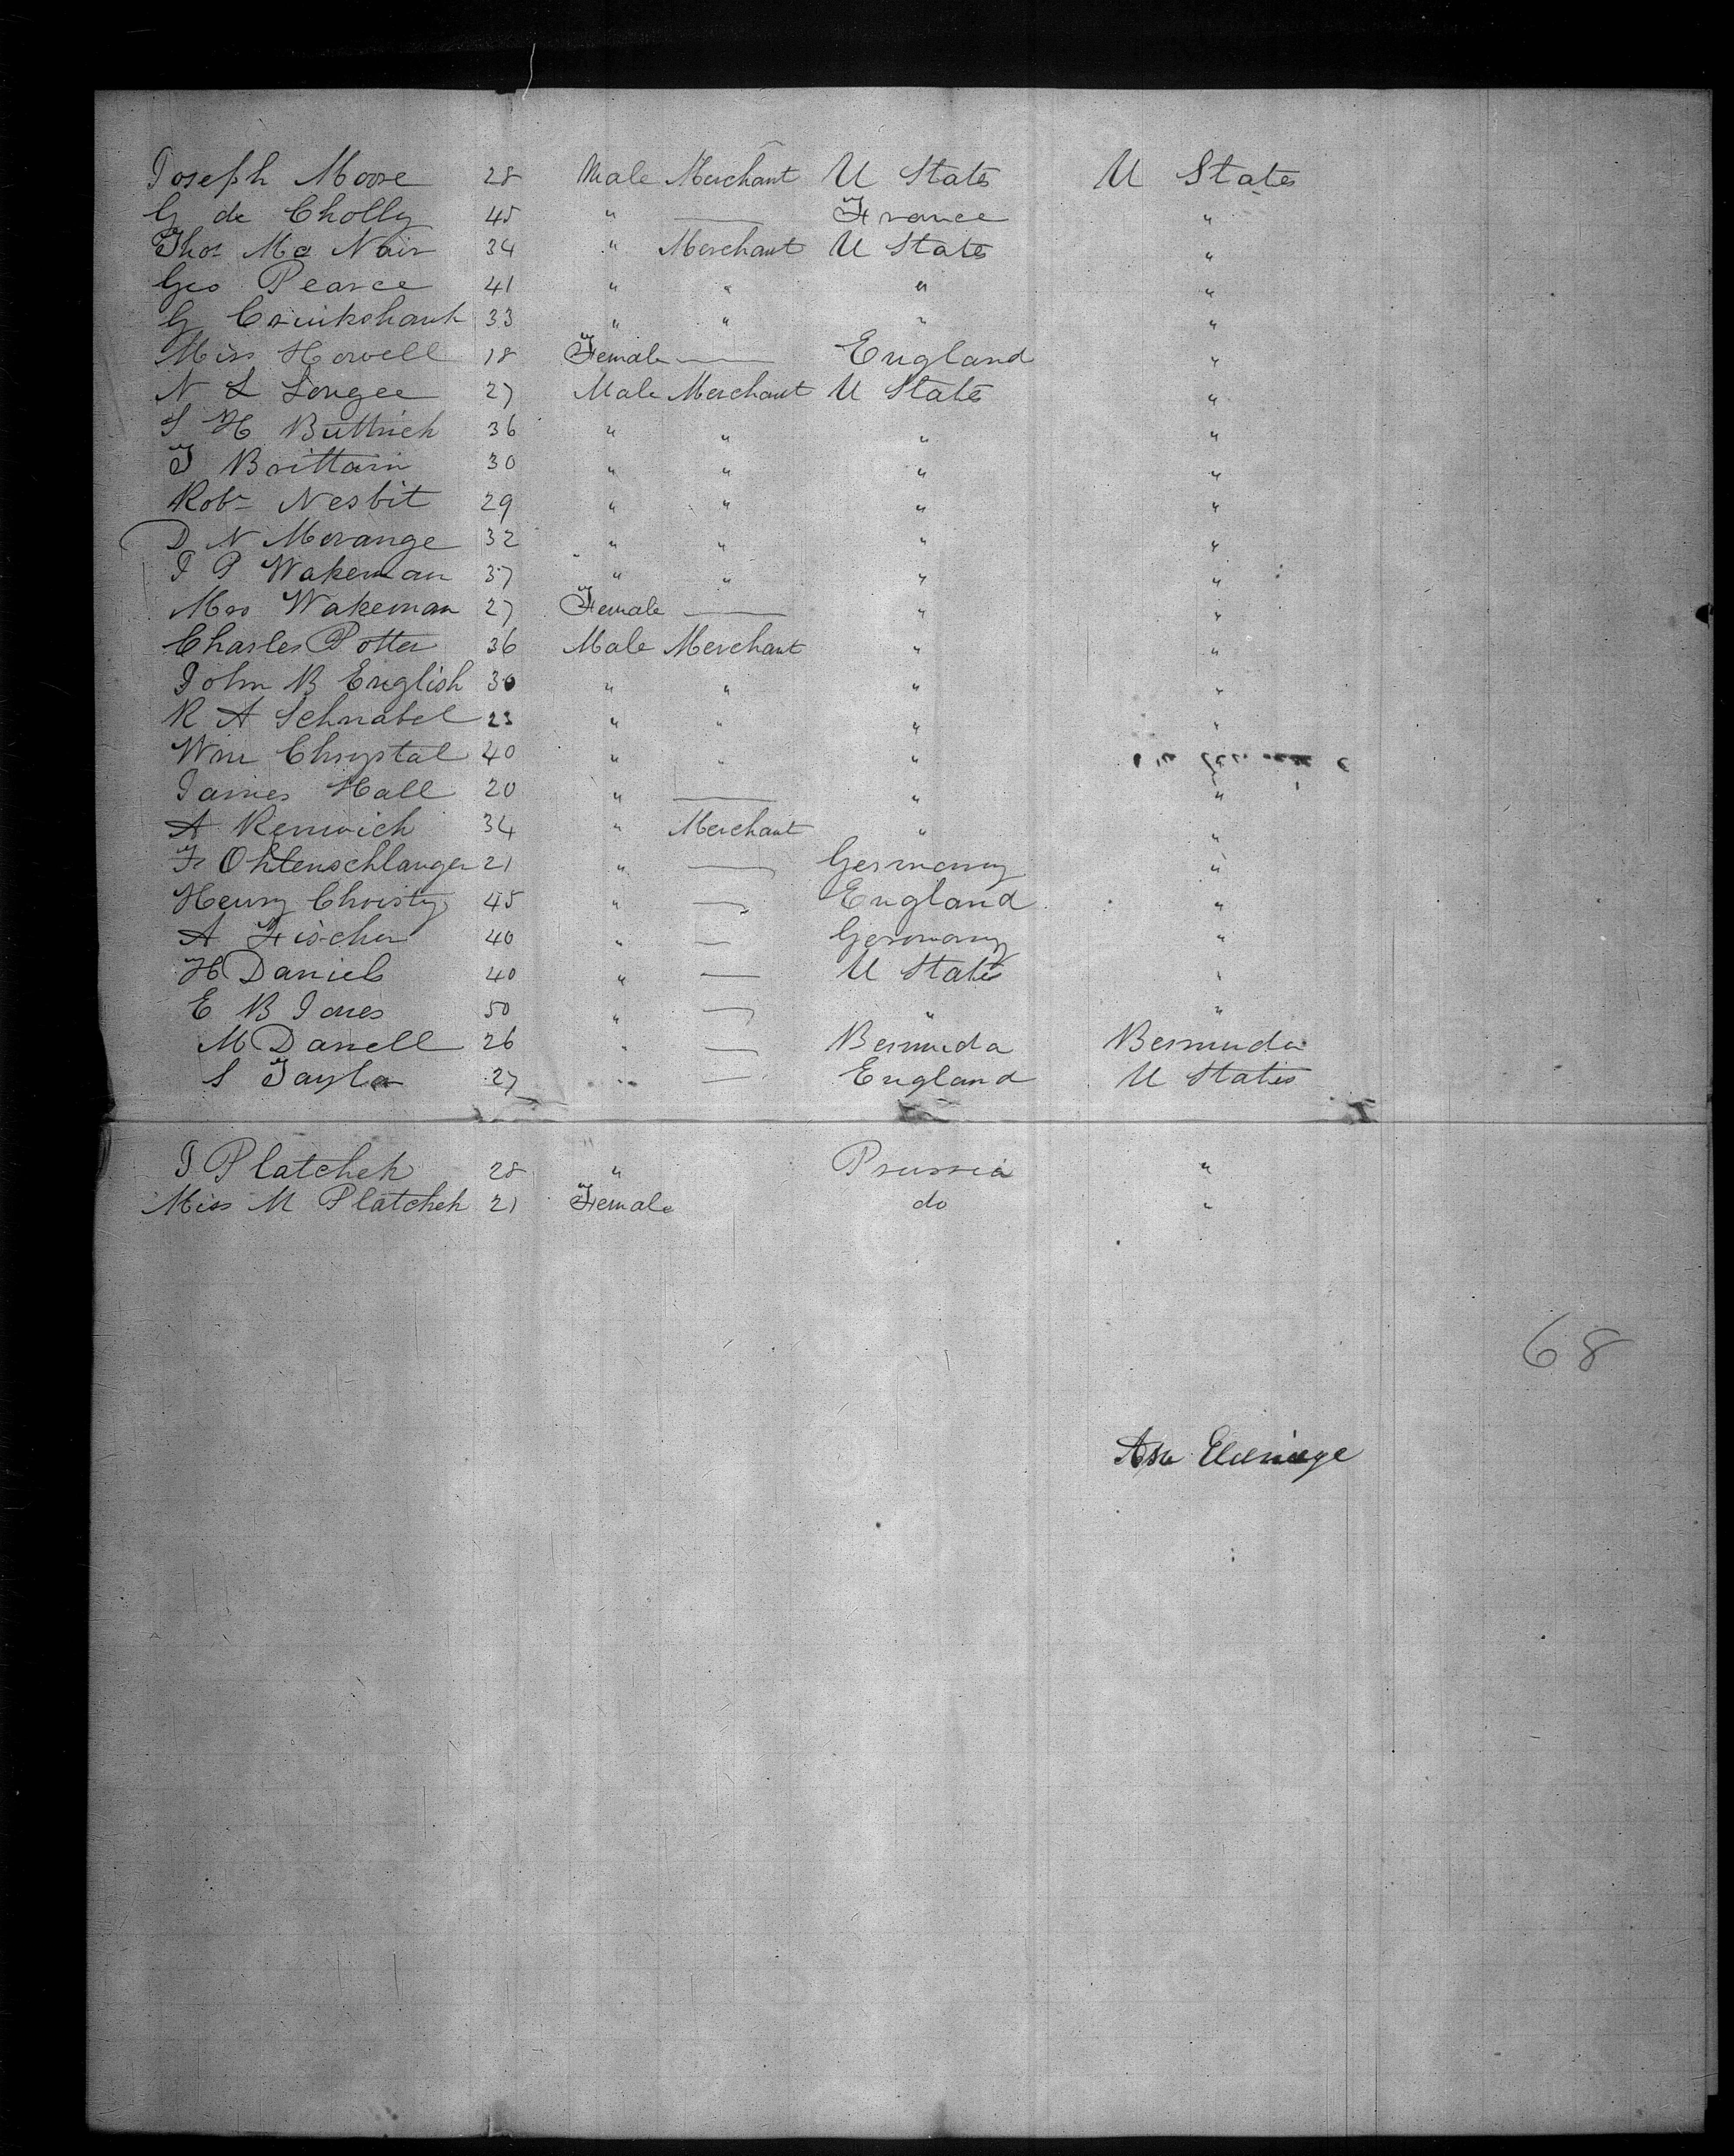 Joseph Moore 28 Male Merchant U States U States
G de Cholly 45 " — France "
Thos Mc Nair 34 " Merchant U States "
Geo Pearce 41 " " " "
G Cruikshank 33 " " " "
Miss Howell 18 Female — England "
N L Lougee 27 Male Merchant U States "
S H Buttrick 36 " " " "
T Brittain 30 " " " "
Robt Nesbit 29 " " " "
D N Morange 32 " " " "
J P Wakeman 37 " " " "
Mrs Wakeman 27 Female — " "
Charles Potter 36 Male Merchant " "
John B English 30 " " " "
R A Schnabel 23 " " " "
Wm Chrystal 40 " " "
James Hall 20 " — " "
A Renwick 34 " Merchant " "
F Ohlenschlanger 21 " — Germany "
Henry Christy 45 " — England "
A Fischer 40 " — Germany "
H Daniels 40 " — U States "
E B Jones 50 " — " "
M Darrell 26 " — Bermuda Bermuda
S Taylor 27 " — England U States
J Platchek 28 " Prussia "
Miss M Platchek 21 Female do "
68
Asa Eldridge